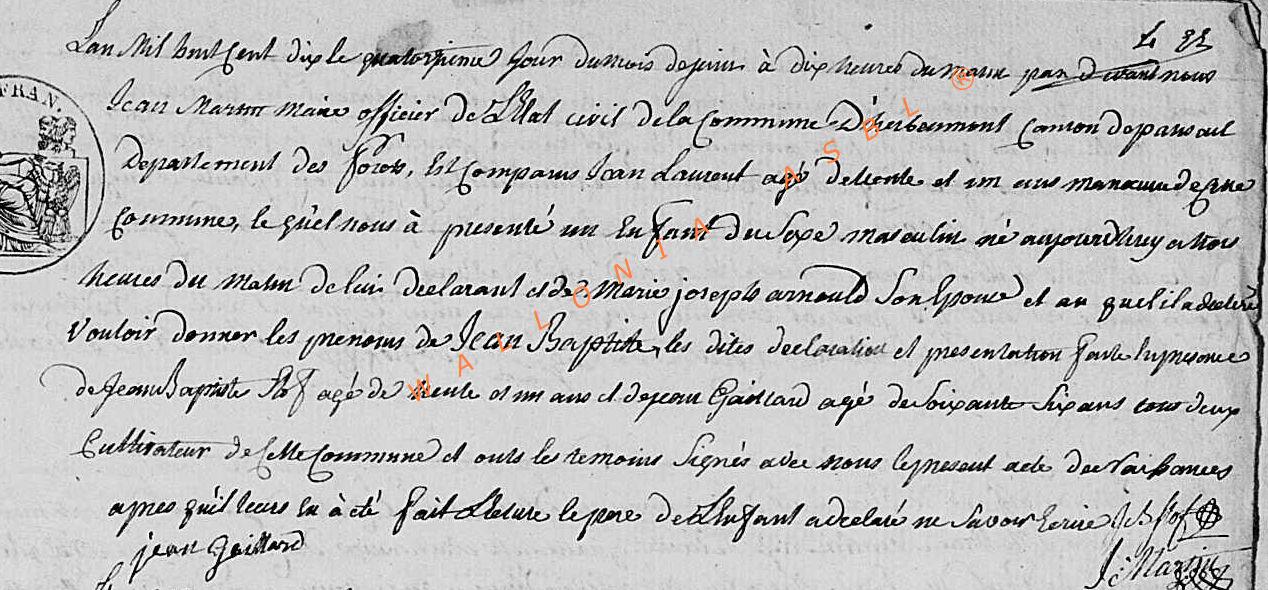 L 32
L'an Mil huit Cent dix le quatorzieme Jour du mois de juin à dix heures du matin par devant nous
Jean Martin Maire officier de L'Etat civil de la Commune D'herbeumont Canton de paliseul
FRAN.
Departement des forets, Est Comparus Jean Laurent agé de trente et un ans manœuvre de cette
Commune, le quel nous à presenté un Enfant du Sexe masculin né aujourd'huy a trois
heures du matin de lui declarant et de Marie joseph arnould Son Epouse et au quel il a declaré
Vouloir donner les prenoms de Jean Baptiste, les dites declaration et presentation faite En presence
de Jean Baptiste Stof agé de trente et un ans et de jean Gaillard agé de Soixante Six ans tous deux
Cultivateur de Cette Commune et onts les temoins Signés avec nous le present acte de Naissances
apres qu'il leurs En à été fait Lecture le pere de L'Enfant a declaré ne Savoir Ecrire J B Stof
jean Gaillard
J: Martin
WALLONIA ASBL ®